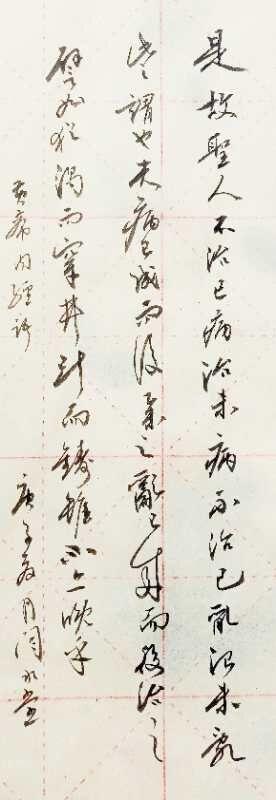 是故聖人不治已病治未病不治已亂治未亂
此之謂也夫病已成而後藥之亂已成而後治之
譬如猶渴而穿井鬥而鑄錐不亦晚乎
黄帝内經
庚子月